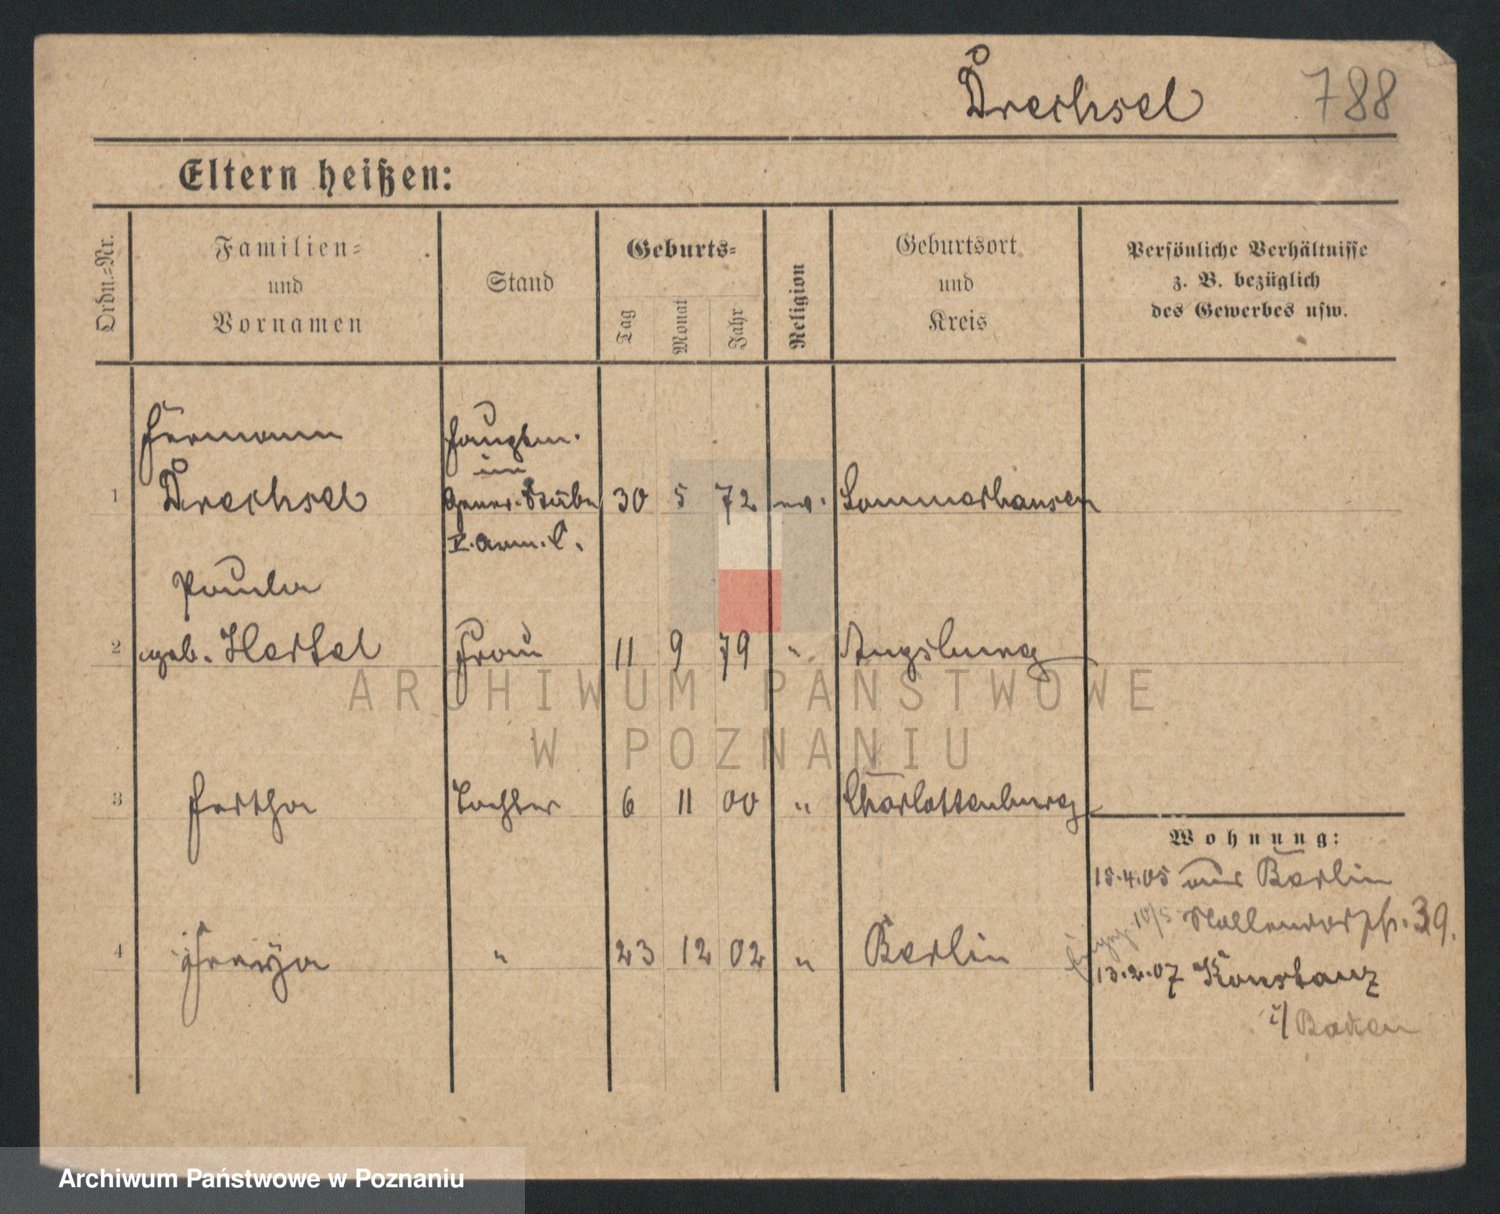 Drechsel 788
Eltern heißen:
Ordn.=Nr.
Familien=
und
Vornamen
Stand
Geburts=
Tag
Monat
Jahr
Religion
Geburtsort
und
Kreis
Persönliche Verhältnisse
z. B. bezüglich
des Gewerbes usw.
Hermann Hauptm.
im
1 Drechsel Gener. Stabe 30 5 72 ev. Sommerhausen
V. Arm. C.
Paula
2 geb. Hertel Frau 11 9 79 " Augsburg
ARCHIWUM PAŃSTWOWE
W POZNANIU
3 Hertha Tochter 6 11 00 " Charlottenburg
Wohnung:
15.4.05 aus Berlin
10/5 Nollendorfstr. 39.
4 Freya " 23 12 02 " Berlin
13.2.07 Konstanz
i/ Baden
Archiwum Państwowe w Poznaniu